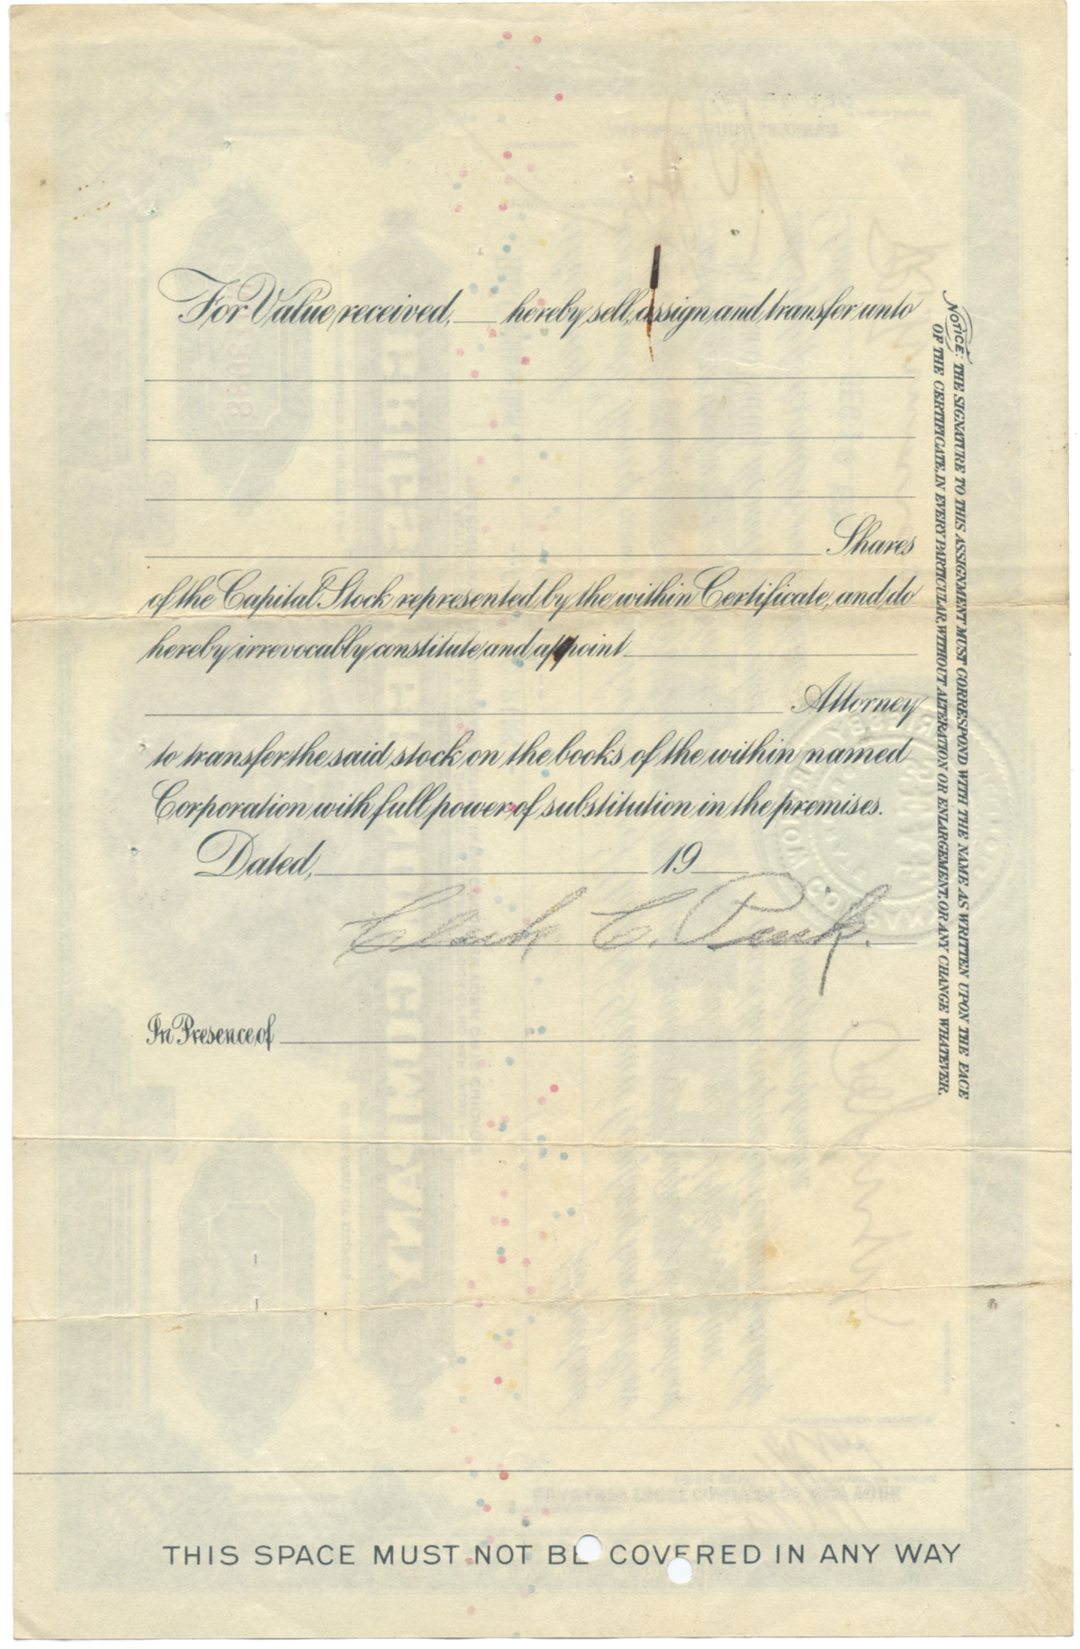 For Value received, hereby sell, assign and transfer unto
Shares
of the Capital Stock represented by the within Certificate, and do
hereby irrevocably constitute and appoint
Attorney
to transfer the said stock on the books of the within named
Corporation with full power of substitution in the premises.
Dated, 19
Clark C. Peirk.
In Presence of
NOTICE: THE SIGNATURE TO THIS ASSIGNMENT MUST CORRESPOND WITH THE NAME AS WRITTEN UPON THE FACE
OF THE CERTIFICATE, IN EVERY PARTICULAR, WITHOUT ALTERATION OR ENLARGEMENT, OR ANY CHANGE WHATEVER.
THIS SPACE MUST NOT BE COVERED IN ANY WAY